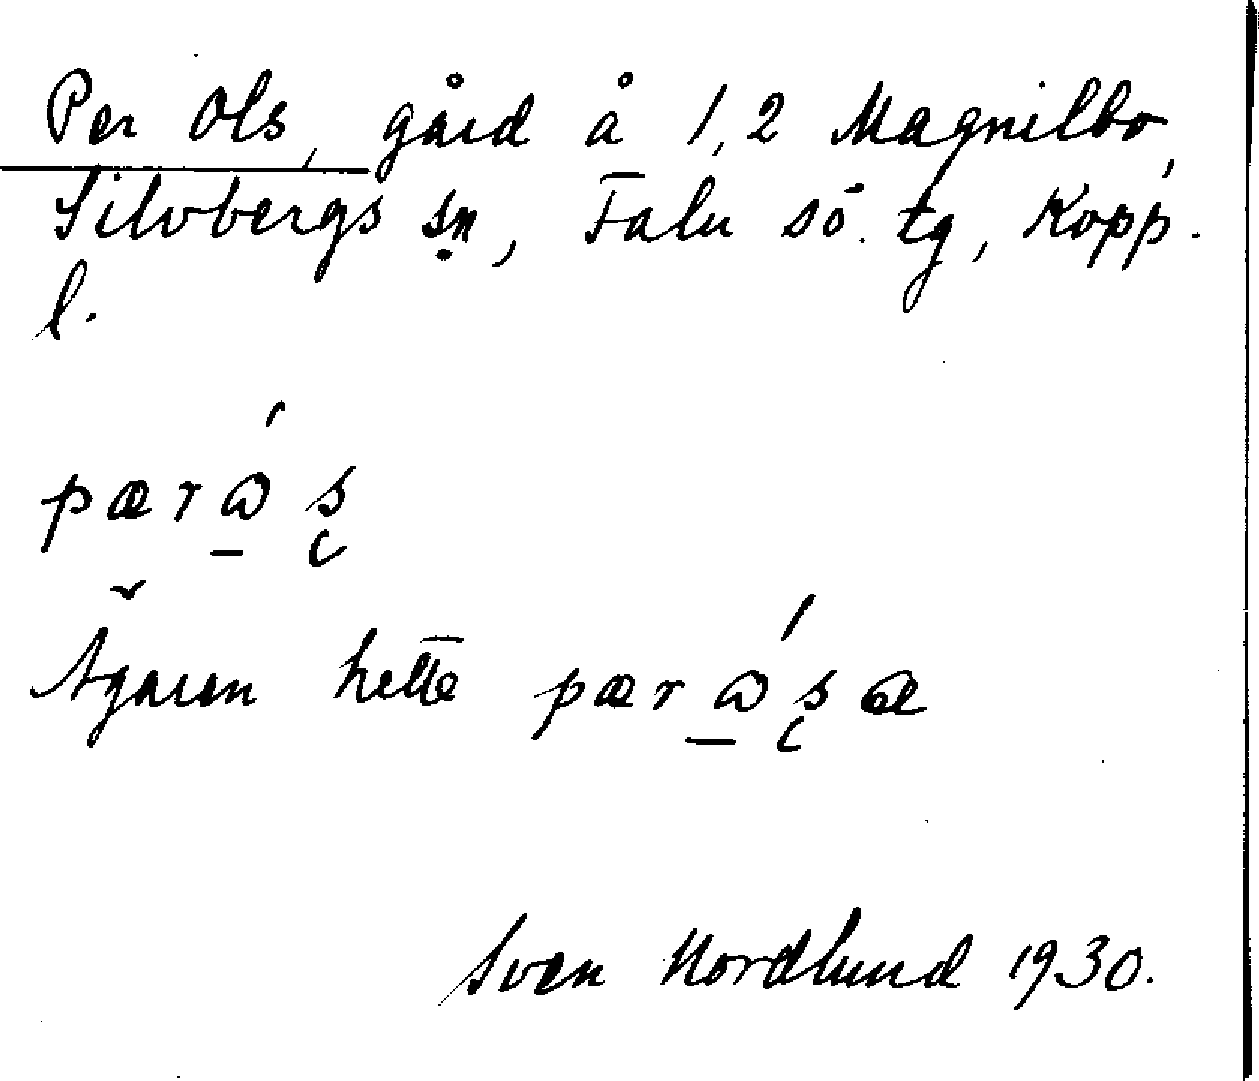 Per Ols, gård å 1,2 Magnilbo,
Silvbergs sn, Falu sö. tg, Kopp.
l.
pærώ̱ s̨
Ägaren hette pærώ̱s̨æ
Sven Nordlund 1930.